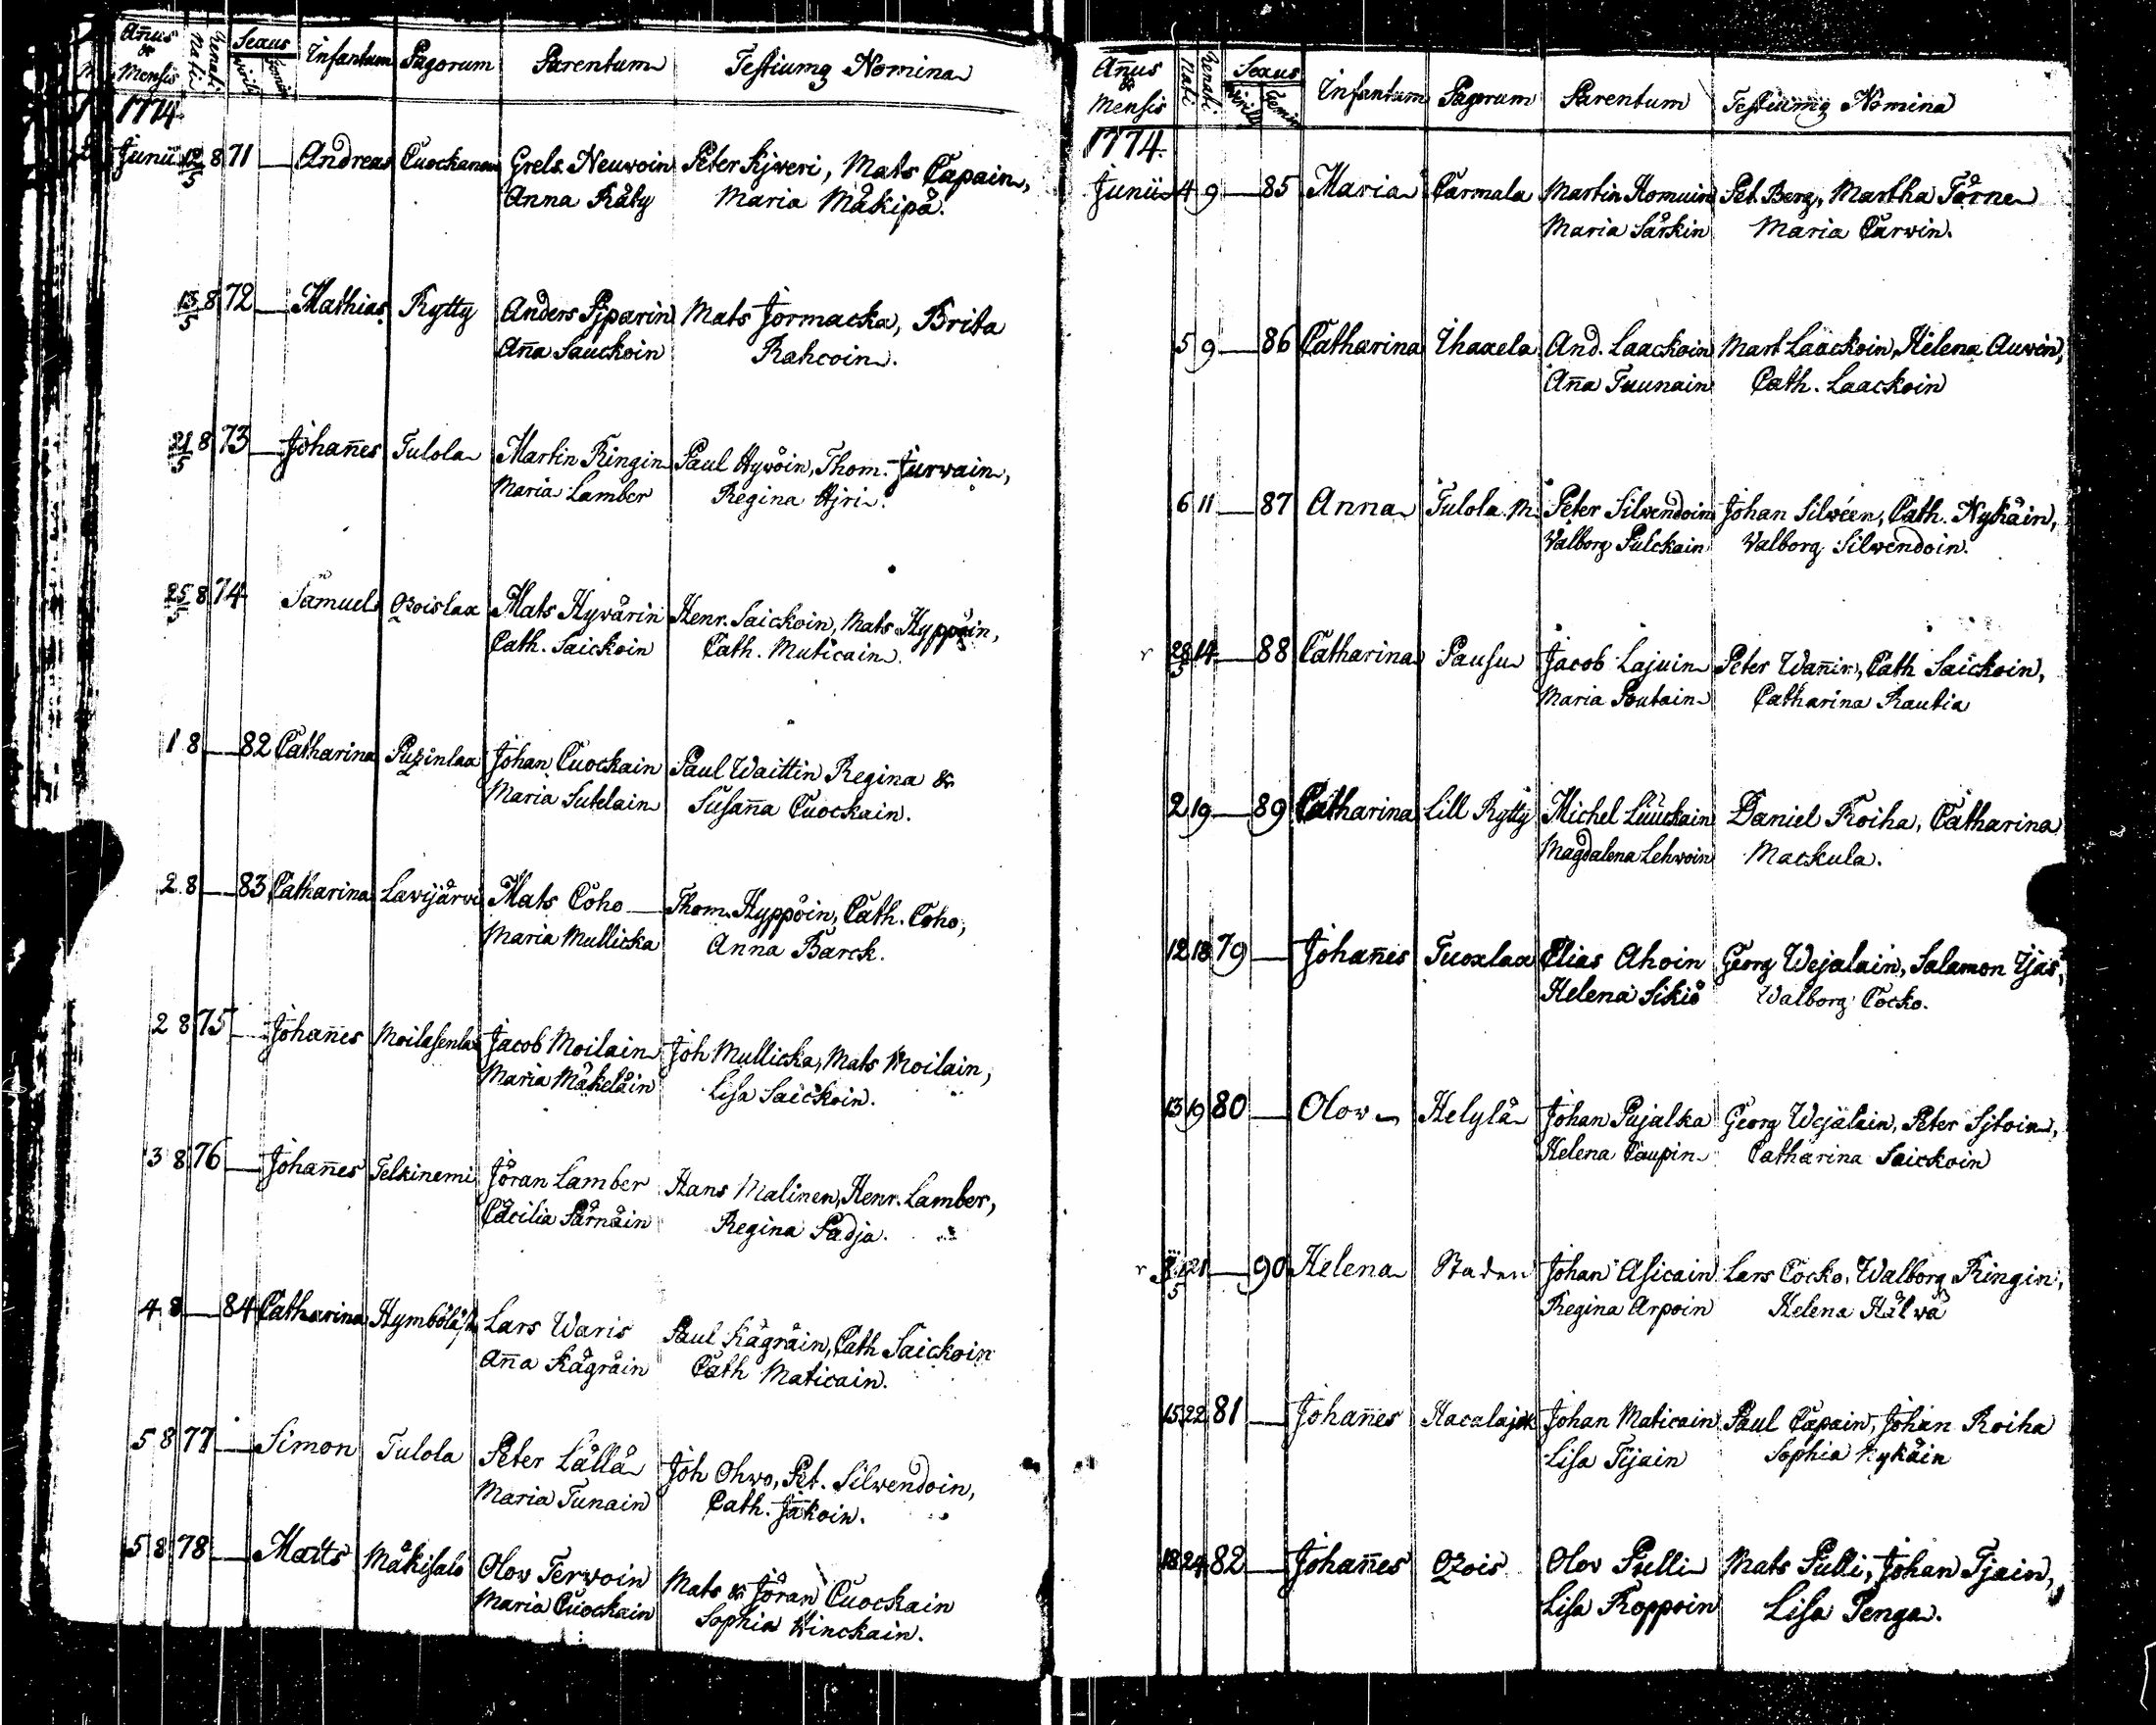 Añus & Mensis Nati Renati Sexus Virilis Femin Infantum Pagorum Parentum Testiumq Nomina
1774
Junii 12/5 8 71 — Andreas Cuockanen Grels. Neuwoin Peter Kjweri, Mats Capain,
Anna Räty Maria Mäkipä.
13/5 8 72 — Mathias Rytty Anders Pjparin Mats Jormacka, Brita
Aña Sauckoin Rahcoin.
21/5 8 73 — Johañes Tulola Martin Ringin Paul Hywöin, Thom. Jurwain,
Maria Lamber Regina Ajri.
25/5 8 74 Samuel Qvoislax Mats Hywärin Henr. Saickoin, Mats Hyppöin,
Cath. Saickoin Cath. Muticain.
1 8 — 82 Catharina Puzinlax Johan Cuockain Paul Waittin Regina &
Maria Sutelain Susaña Cuockain.
2 8 — 83 Catharina Lavijärvi Mats Coho — Thom. Hyppöin, Cath. Coho,
Maria Mullicka Anna Barck.
2 8 75 — Johañes Moilasenlax Jacob Moilain Joh Mullicka, Mats Moilain,
Maria Mäkeläin Lisa Saickoin.
3 8 76 — Johañes Telkinemi Jöran Lamber Hans Malinen, Henr. Lamber,
Cäcilia Särnäin Regina Padja.
4 8 — 84 Catharina Hymbölä Lars Waris Paul Kägräin, Cath Saickoin
Aña Kägräin Cath Maticain.
5 8 77 — Simon Tulola Peter Lällä Joh Ohwo, Pet. Silwendoin,
Maria Tunain Cath. Jäkoin.
5 8 78 — Matts Mäkisalo Olov Terwoin Mats & Jöran Cuockain
Maria Cuockain Sophia Hinckain.
Añus & Mensis Nati Renati. Sexus Virilis Femin Infantum Pagorum Parentum Testiumq Nomina
1774.
Junii 4 9 — 85 Maria Carmala Martin Homuin Pet. Berg, Martha Törne
Maria Särkin Maria Carwin.
5 9 — 86 Catharina Ihaxela And. Laackoin Mart Laackoin, Helena Auwin,
Aña Tuunain Cath. Laackoin
6 11 — 87 Anna Tulola M. Peter Silwendoin Johan Silwéen, Cath. Nykäin,
Valborg Pulckain Valborg Silwendoin.
28/5 14 — 88 Catharina Pausu Jacob Lajuin Peter Wañin, Cath Saickoin,
Maria Poutain Catharina Rautia
2 19 — 89 Catharina Lill Rytty Michel Luuckain Daniel Roiha, Catharina
Magdalena Lehwoin Mackula.
12 18 79 — Johañes Tuoxlax Elias Ahoin Georg Wejalain, Salamon Ijäs,
Helena Sikiö Walborg Cocko.
13 19 80 — Olov Helylä Johan Pujalka Georg Wejälain, Peter Sjtoin,
Helena Caupin Catharina Saickoin
21 — 90 Helena Staden Johan Asicain Lars Cocko, Walborg Ringin,
Regina Arpoin Helena Hälwä
15 22 81 — Johañes Hacalajok Johan Maticain Paul Capain, Johan Roiha
Lisa Tijain Sophia Nykäin
18 24 82 — Johañes Qvois Olov Pulli Mats Pulli, Johan Tjain,
Lisa Roppoin Lisa Penga.